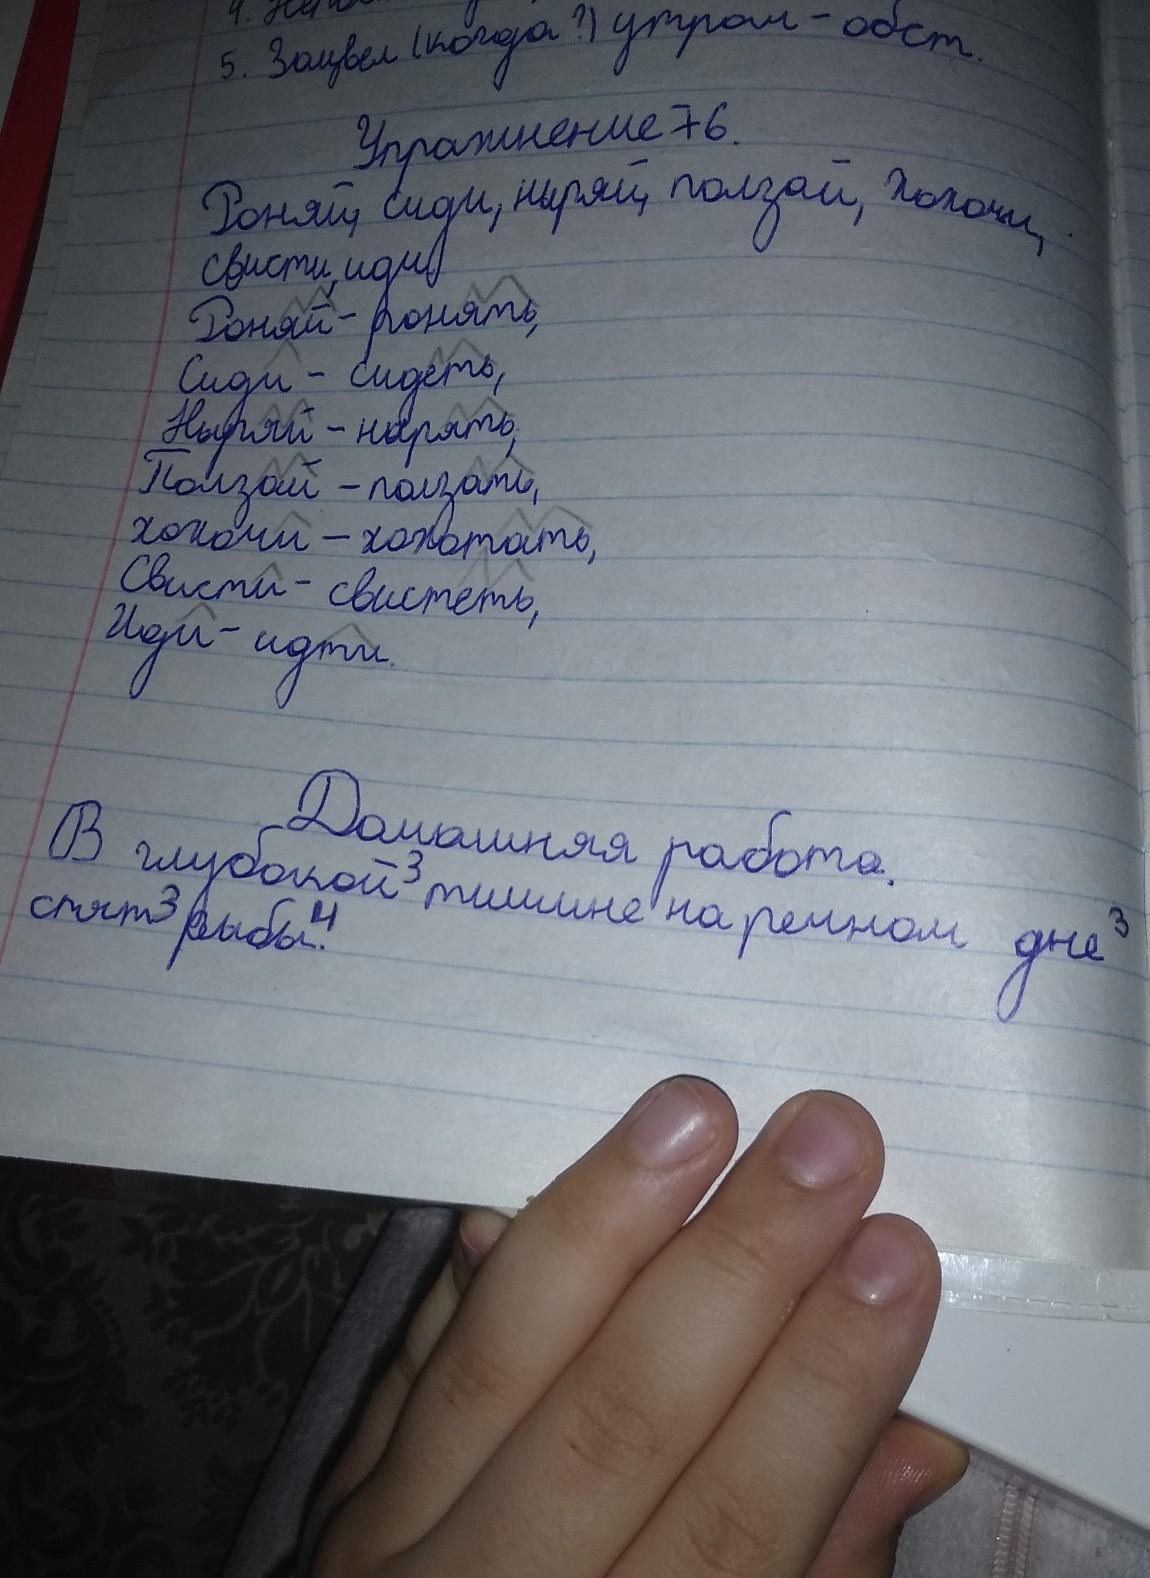 4.
5. Зацвел (когда?) утром - обст.
Упражнение 76.
Роняй, сиди, ныряй, ползай, хохочи,
свисти, иди
Роняй - ронять,
Сиди - сидеть,
Ныряй - нырять,
Ползай - ползать,
хохочи - хохотать,
Свисти - свистеть,
Иди - идти.
Домашняя работа.
В глубокой³ тишине на речном дне³
спят³ рыбы.⁴